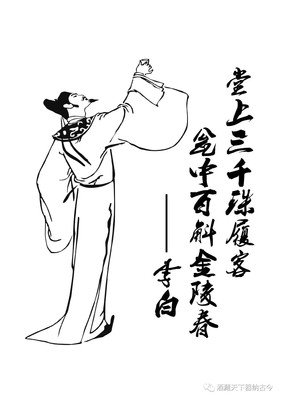 堂上三千珠履客
瓮中百斛金陵春
——李白
酒遍天下器纳古今